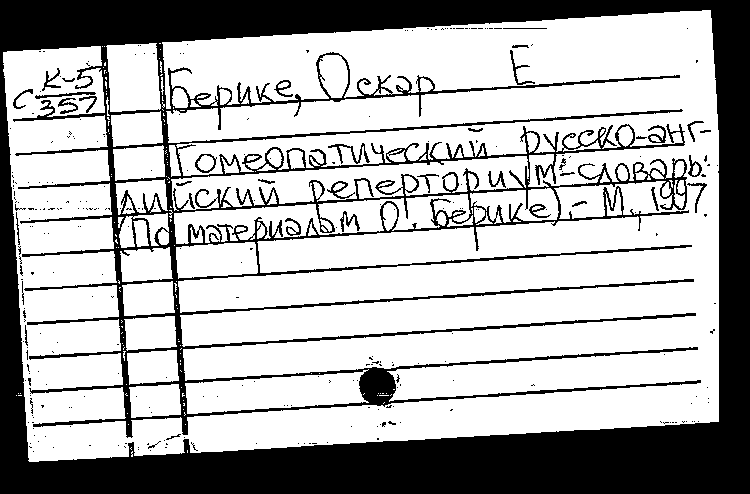 С К-5/357 Берике, Оскар Е
Гомеопатический русско-анг-
лийский реперториум-словарь:
(По материалам О. Берике).- М., 1997.